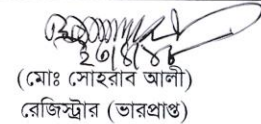 (মোঃ সোহরাব আলী)
রেজিস্ট্রার (ভারপ্রাপ্ত)